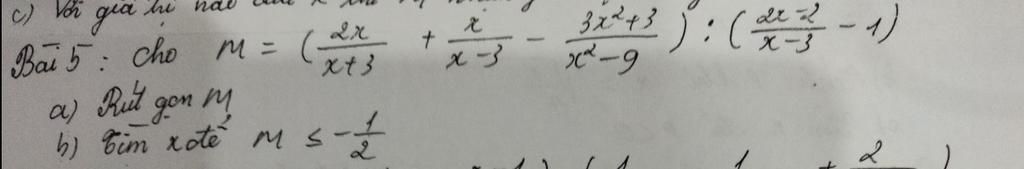 c) Với giá trị nào của x thì M
Bài 5 : Cho M = ( 2x/(x+3) + x/(x-3) - (3x²+3)/(x²-9) ) : ( (2x-2)/(x-3) - 1 )
a) Rút gọn M
b) Tìm x để M ≤ -1/2